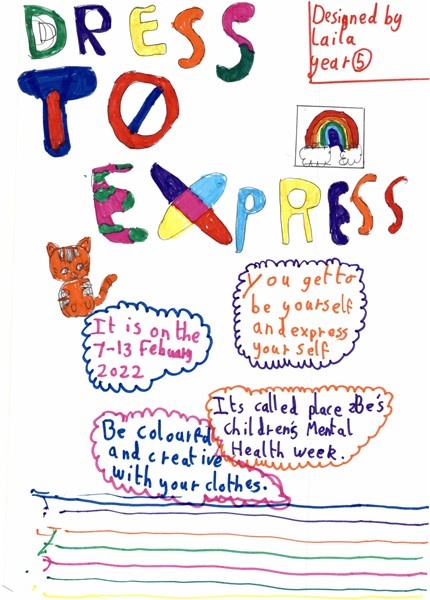 DRESS
TO
EXPRESS
Designed by
Laila
year 5
It is on the
7-13 Febuary
2022
You get to
be yourself
and express
your self
Its called place 2Be's
children's Mental
Health week.
Be colourful
and creative
with your clothes.